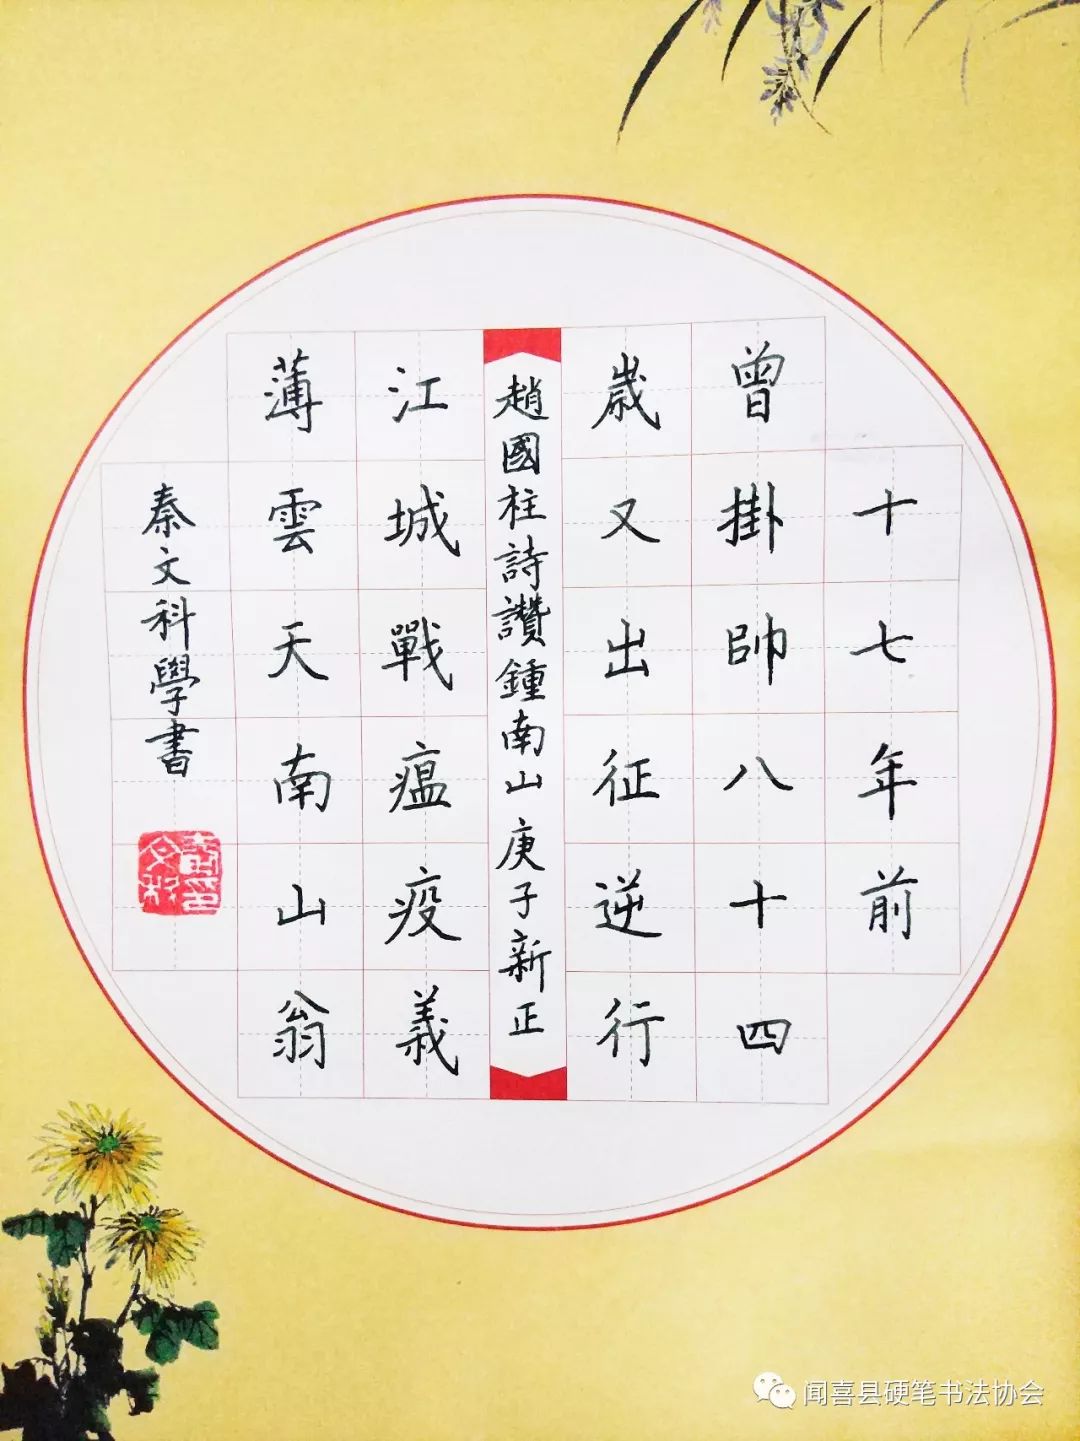 十七年前
曾掛帥八十四
歲又出征逆行
趙國柱詩讚鍾南山庚子新正
江城戰瘟疫義
薄雲天南山翁
秦文科學書
闻喜县硬笔书法协会